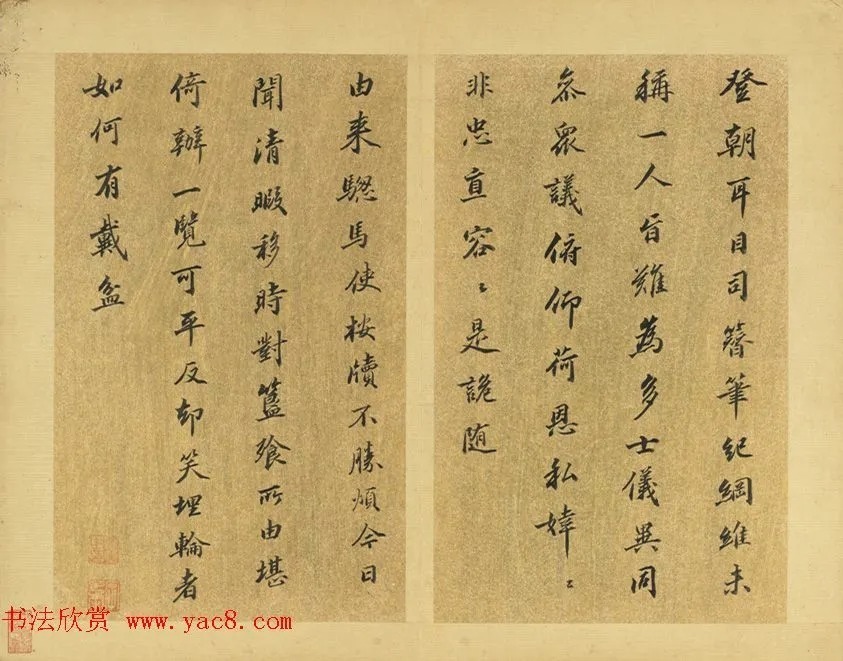 登朝耳目司簪筆紀綱維未
稱一人旨難為多士儀異同
叅眾議俯仰荷恩私婞〻
非忠直容〻是詭随
由来驄馬使按牘不勝煩今日
聞清暇移時對簋飧所由堪
倚辦一覽可平反却笑埋輪者
如何有戴盆
书法欣赏 www.yac8.com